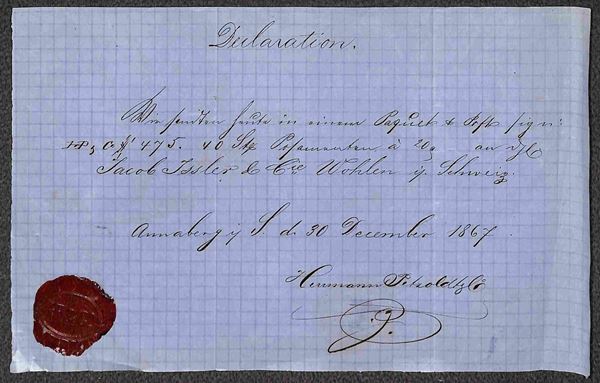 Declaration.
Wir senden heute in einem Paquet & Post sign:
475. 40 Stg Posamenten à 20g an
Jacob Isler & Co Wohlen i/ Schweiz.
Annaberg i/ S. d. 30 December 1867
Hermann Petzoldt & Co
P.